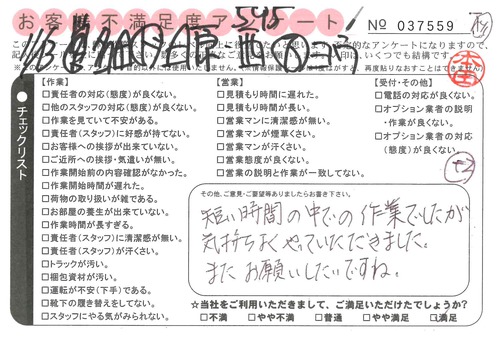 お客様不満足度アンケート
545
№ 037559
【作業】
□責任者の対応(態度)が良くない。
□他のスタッフの対応(態度)が良くない。
□作業を見ていて不安がある。
□責任者(スタッフ)に好感が持てない。
□お客様への挨拶が出来ていない。
□ご近所への挨拶・気遣いが無い。
□作業開始前の内容確認がなかった。
□作業開始時間が遅れた。
□荷物の取り扱いが雑である。
□お部屋の養生が出来ていない。
□作業時間が長すぎる。
□責任者(スタッフ)に清潔感が無い。
□責任者(スタッフ)が汗くさい。
□トラックが汚い。
□梱包資材が汚い。
□運転が不安(下手)である。
□靴下の履き替えをしてない。
□スタッフにやる気がみられない。
チェックリスト
【営業】
□見積もり時間に遅れた。
□見積もり時間が長い。
□営業マンに清潔感が無い。
□営業マンが煙草くさい。
□営業マンが汗くさい。
□営業態度が良くない。
□営業の説明と作業が一致してない。
【受付・その他】
□電話の対応が良くない。
□オプション業者の説明・作業が良くない。
□オプション業者の対応(態度)が良くない。
その他、ご意見・ご要望等ありましたらお書き下さい。
短い時間の中での作業でしたが
気持ちよくやっていただきました。
またお願いしたいですね。
☆当社をご利用いただきまして、ご満足いただけたでしょうか?
□不満 □やや不満 □普通 □やや満足 □満足